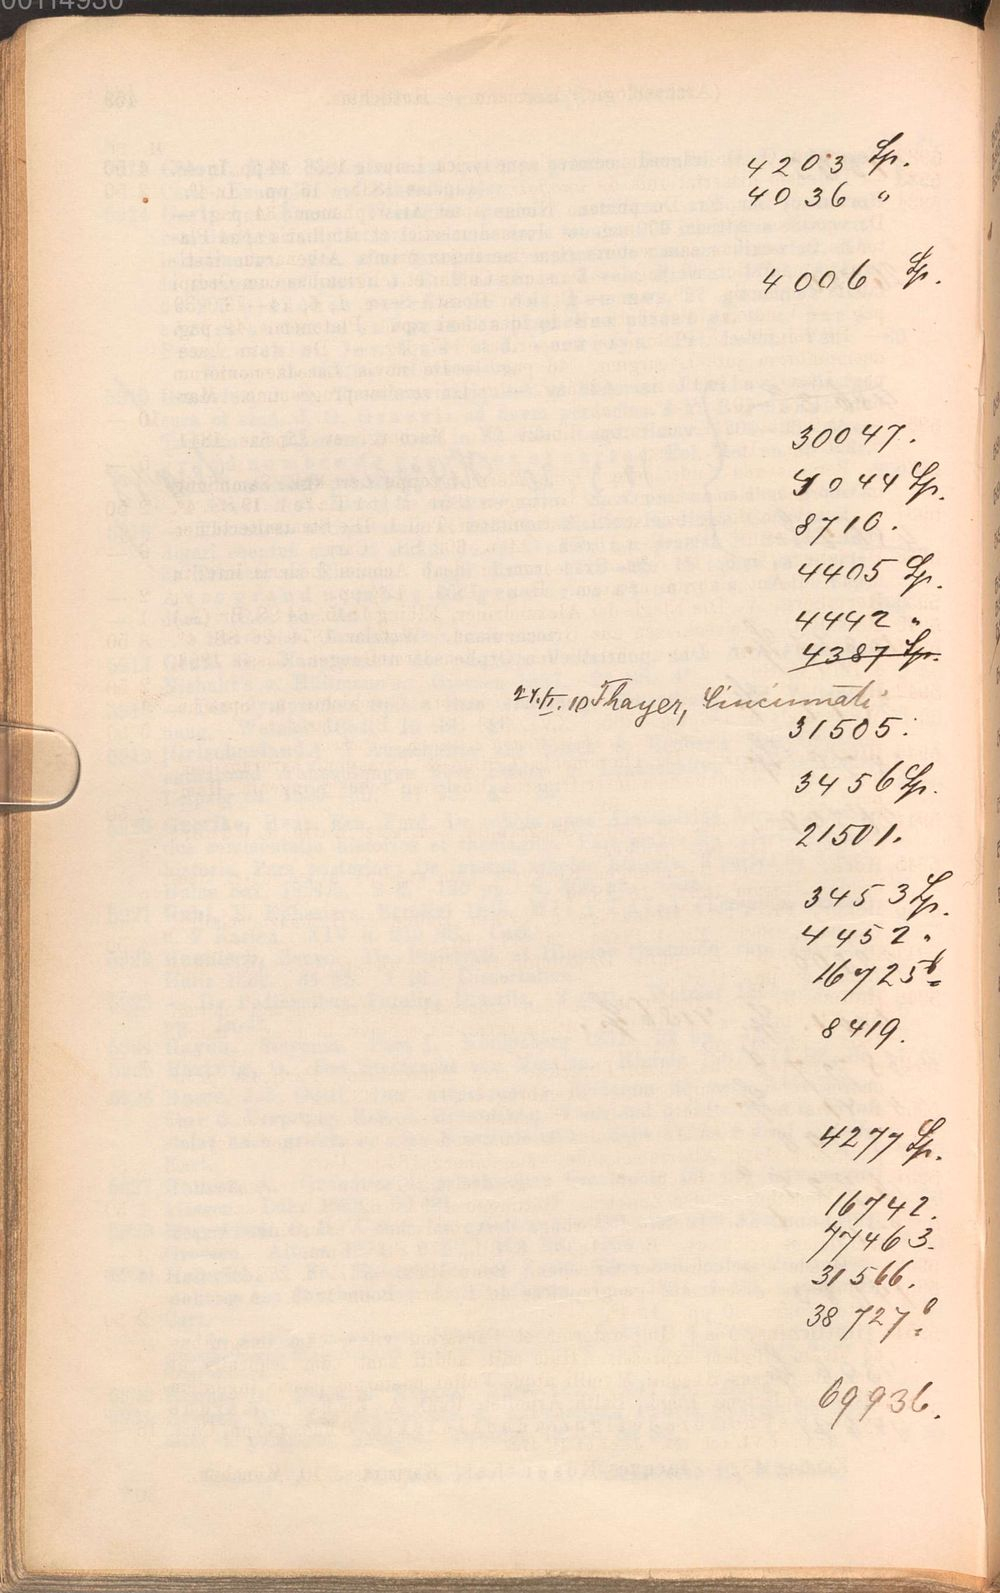 00114930
4203 Lp.
4036 "
4006 Lp.
30047.
4044 Lp.
8710.
4405 Lp.
4442 "
4387 Lp.
Thayer, Cincinnati
31505.
3456 Lp.
21501.
3453 Lp.
4452 "
16725b
8419.
4277 Lp.
16742.
77463.
31566.
38727
69936.